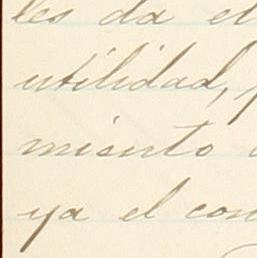 les da el
utilidad,
miento
ya el con